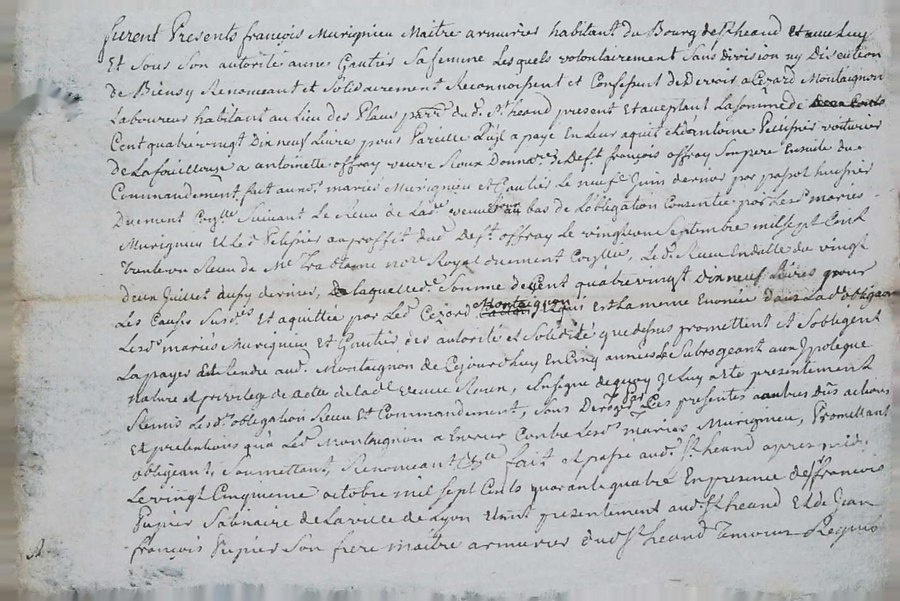 furent Presents françois Murigneu Maitre armurier habitant du Bourg de St heand et avec luy
Et sous son autorité anne Gautier Sa femme Lesquels volontairement Sans division ny Discution
de Biens y Renonceant et Solidairement Reconnoissent et Confessent de Devoir a Cezard Montaignon
Laboureur habitant au Lieu des Plaux parr. dud. St heand present et aceptant La somme de
Cent quatre vingt Dix neuf Livres pour Pareille qu'il a payé En Leur aquit a antoine Pellissier voiturier
de Lafoüillouze a antoinette offray veuve Roux Donnre de deft françois offray Son pere Ensuite du
Commandement fait aux d. mariés Murigneu et Gautier Le neufe Juin dernier par huissier
Duement Suivant Le Receu de Lad. veuve Roux au bas de L'obligation Consentie par Les d. mariés
Murigneu et Led. Pelissier au proffit dud. Deft offray Le vingt Septembre mil sept Cent
trente un Receu de Me nore Royal duement Le d. Receu En datte du vingt
deux Juillet aussy dernier, laquelle d. Somme de Cent quatre vingt Dix neuf Livres pour
Les Causes Susd. Et aquittée par Led. Cezard Montaignon Est La meme Enoncée dans Lad. obligaon
Lesd. mariés Murigneu Et Gautier des autorité et Solidité que dessus promettent et S'obligent
La payer et rendre aud. Montaignon de Cejourd'huy En Cinq années Le Subrogeant aux Ypoteque
nature et privilege de dette de lad. veuve Roux, En signe de quoy Il Luy a été presentement
Remis Lesd. obligation Receu Et Commandement, Sans Deroger par Les presentes a autres dûs actions
Et pretentions qu'a Led. Montaignon a Exercer Contre Lesd. mariés Murigneu, Promettant
obligeant, Soumettant, Renonceant &a fait et passé aud. St heand apres midi
Le vingt Cinquieme octobre mil sept Cents quarante quatre En presence de Sr françois
Pupier de La ville de Lyon Etant presentement aud. St heand Et de Jean
françois Pupier Son frere maitre armurier dud. St heand Temoins Requis